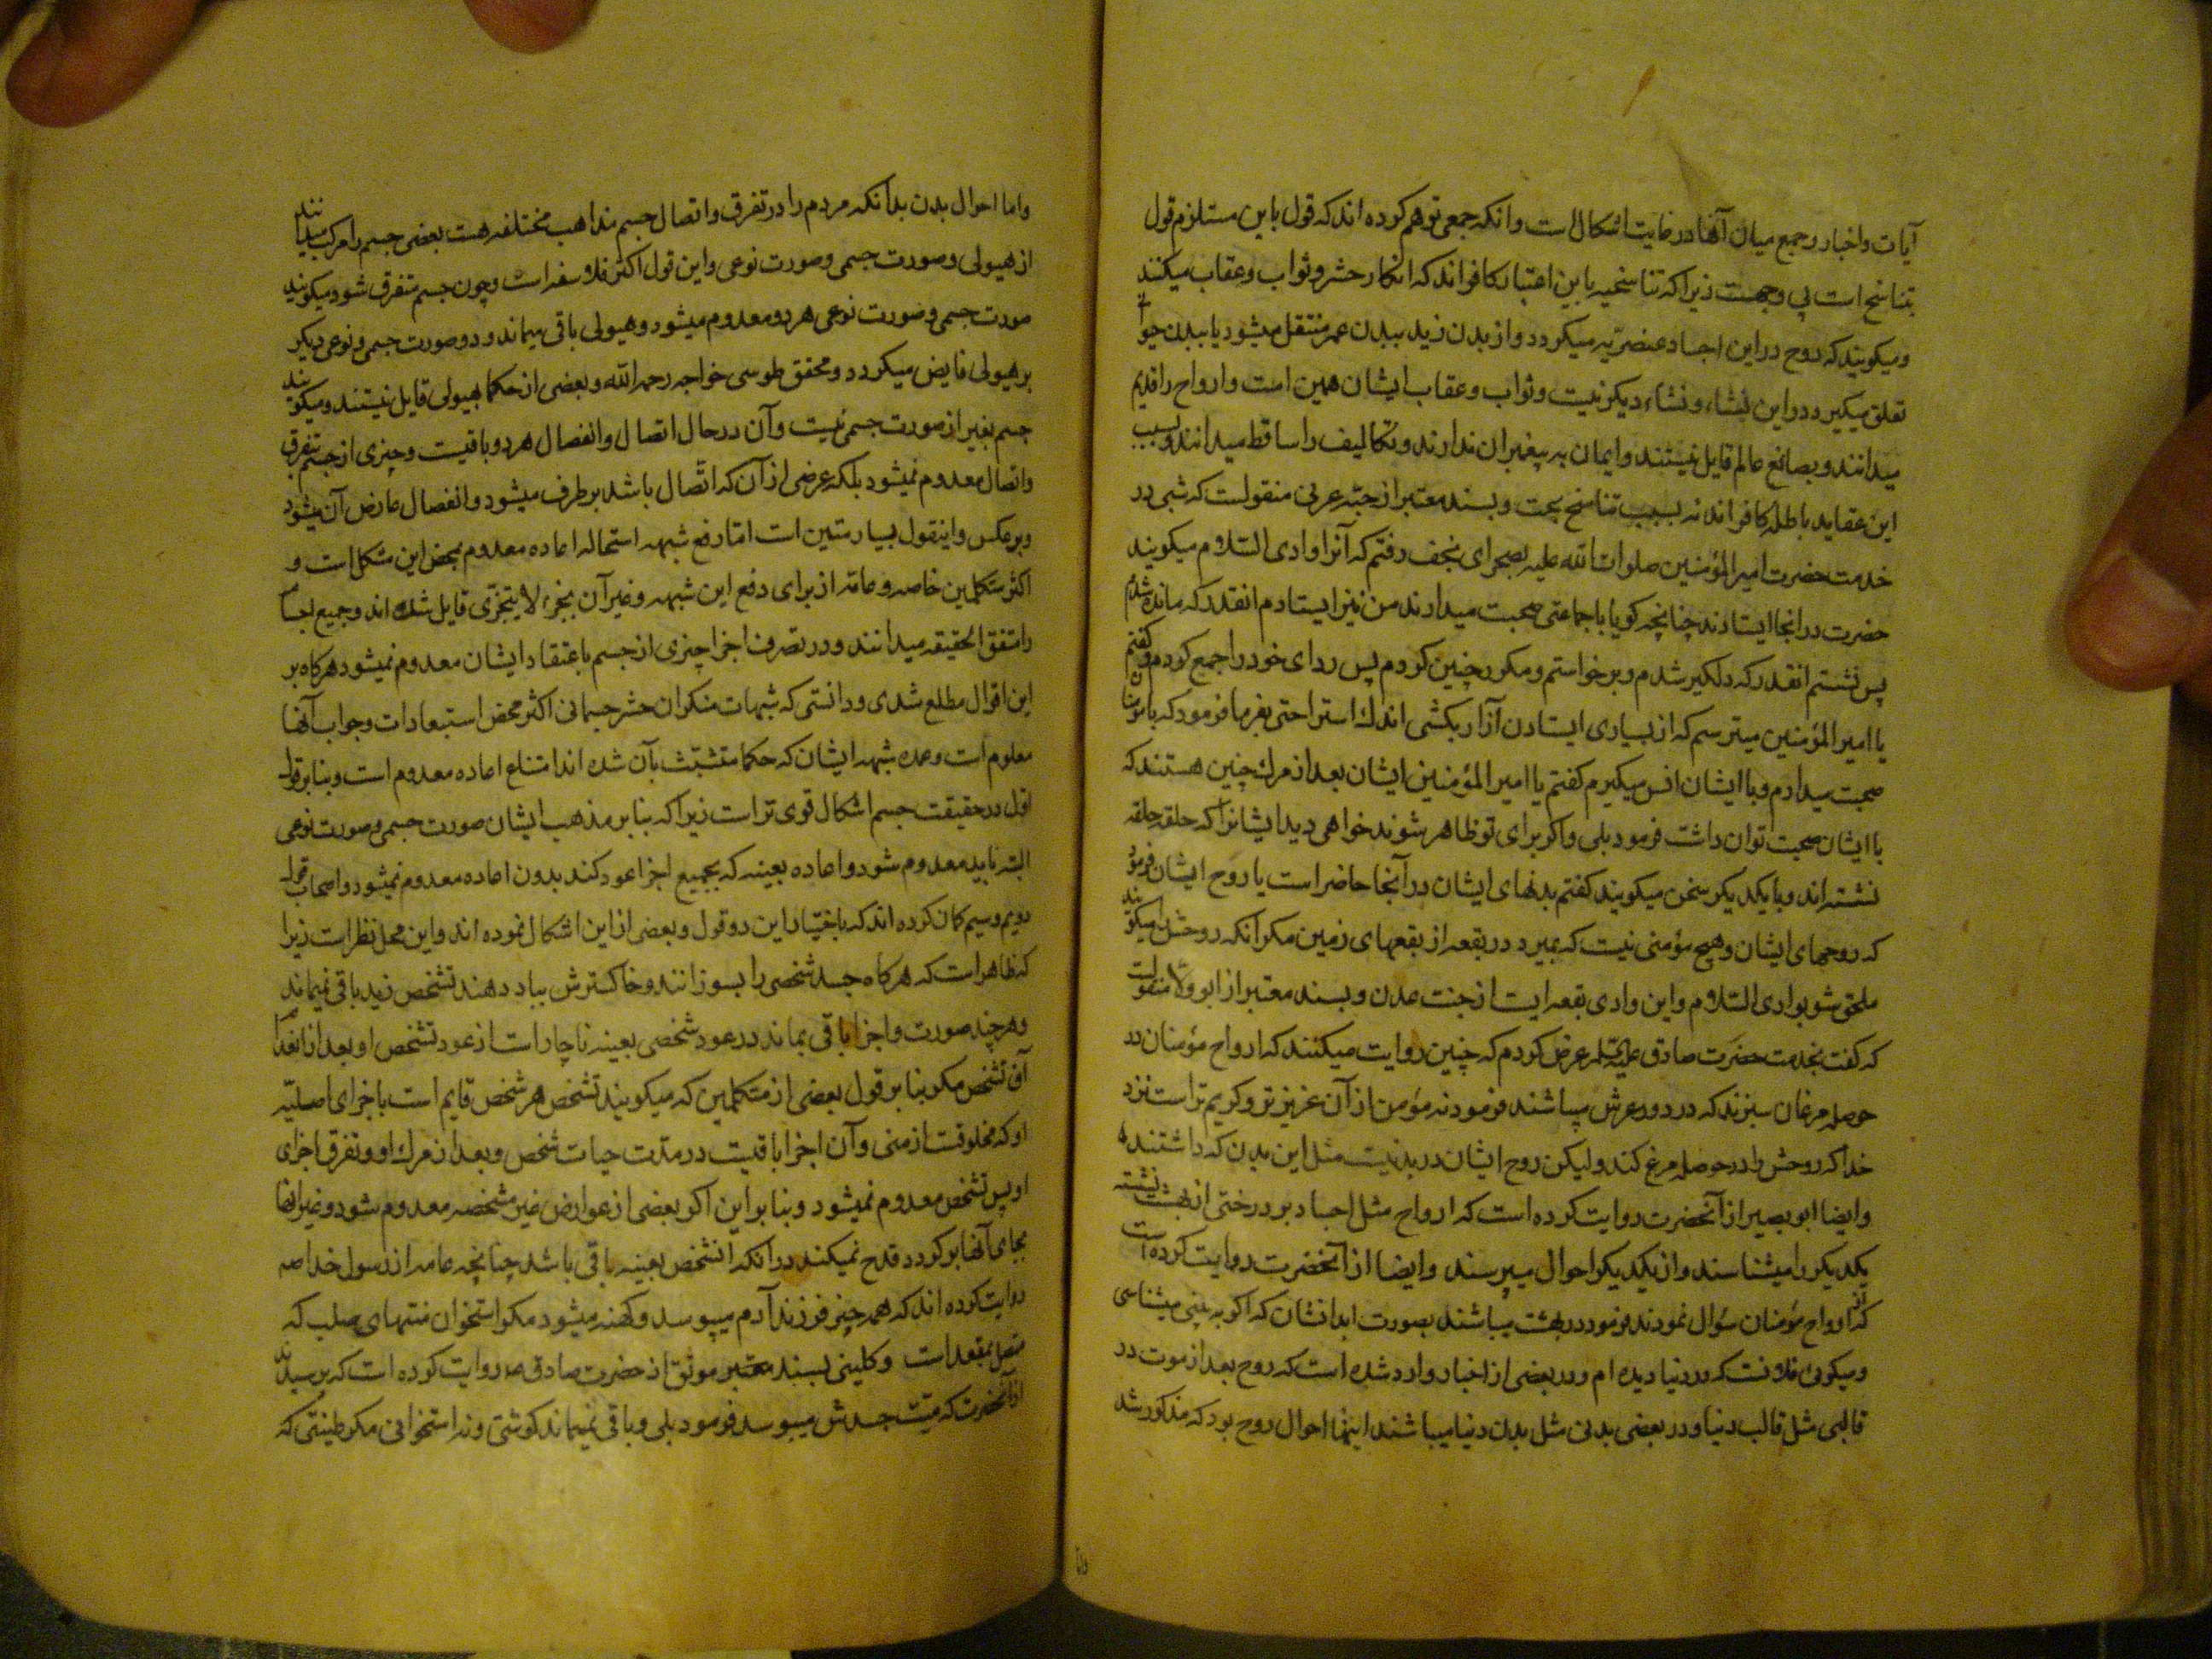 آیات و اخبار و جمیع میان آنها در غایت اشکال است و انکه جمعی توهم کرده اند که قول باین مستلزم قول
بتناسخ است پی وجهست زیرا که تناسخیه باین اعتبار کافراند که انکار حشر و ثواب و عقاب میکنند
و میکویند که روح در این اجساد عنصریّه میکردد و از بدن زید ببدن عمر منتقل میشود یا ببدن حیوا
تعلق میکیرد و در این نشاء و نشاء دیکر نیست و ثواب و عقاب ایشان همین است و ارواح را قدیم
میدانند و بصانع عالم قایل نیستند و ایمان به پیغمبران ندارند و تکالیف را ساقط میدانند و بسبب
این عقاید باطله کافراند نه بسبب تناسخ بحت و بسند معتبر از حبّه عرنی منقولست که شبی در
خدمت حضرت امیر المؤمنین صلوات الله علیه بصحرای نجف رفتم که آنرا وادی السّلام میکویند
حضرت در انجا ایستادند چنانچه کویا با جماعتی صحبت میدارند من نیز ایستادم انقدر که مانده شدم
پس نشستم انقدر که دلکیر شدم و برخواستم و مکرر چنین کردم پس ردای خود را جمع کردم و کفتم
یا امیر المؤمنین میترسم که از بسیاری ایستادن آزار بکشی اندك استراحتی بفرما فرمود که با مؤمنان
صحبت میدارم و با ایشان انس میکیرم کفتم یا امیر المؤمنین ایشان بعد از مرك چنین هستند که
با ایشان صحبت توان داشت فرمود بلی و اکر برای تو ظاهر شوند خواهی دید ایشانرا که حلقه حلقه
نشسته اند و با یکدیکر سخن میکویند کفتم بدنهای ایشان در آنجا حاضر است یا روح ایشان فرمود
که روحهای ایشان و هیچ مؤمنی نیست که بمیرد در بقعه از بقعهای زمین مکر آنکه روحش را میکویند
ملحق شو بوادی السّلام و این وادی بقعه ایست از جنت عدن و بسند معتبر از ابو ولّاد منقولست
که کفت بخدمت حضرت صادق علیه السلم عرض کردم که چنین روایت میکنند که ارواح مؤمنان در
حوصله مرغان سبزند که در دور عرش میباشند فرمود نه مؤمن از آن عزیزتر و کریم تر است نزد
خدا که روحش را در حوصله مرغ کند ولیکن روح ایشان در بدنیست مثل این بدن که داشتند
و ایضا ابو بصیر از آنحضرت روایت کرده است که ارواح مثل اجساد بر درختی از بهشت نشسته
یکدیکر را میشناسند و از یکدیکر احوال میپرسند و ایضا از آنحضرت روایت کرده است
که از ارواح مؤمنان سؤال نمودند فرمود در بهشت میباشند بصورت ابدانشان که اکر به بینی میشناسی
و میکوئی فلانست که در دنیا دیده ام و در بعضی از اخبار وارد شده است که روح بعد از موت در
قالبی مثل قالب دنیا و در بعضی بدنی مثل بدن دنیا میباشند اینها احوال روح بود که مذکور شد
و اما احوال بدن بدانکه مردم را در تفرق و اتصال جسم مذاهب مختلفه هست بعضی جسم را مرکب میدانند
از هیولی و صورت جسمی و صورت نوعی و این قول اکثر فلاسفه است و چون جسم متفرق شود میکویند
صورت جسمی و صورت نوعی هر دو معدوم میشود و هیولی باقی میماند و دو صورت جسمی و نوعی دیکر
بر هیولی فایض میکردد و محقق طوسی خواجه رحمه الله و بعضی از حکما بهیولی قایل نیستند و میکویند
جسم بغیر از صورت جسمی نیست و آن در حال اتصال و انفصال هر دو باقیست و چیزی از جسم بتفرق
و اتصال معدوم نمیشود بلکه عرضی از آن که اتّصال باشد بر طرف میشود و انفصال عارض آن میشود
و بر عکس و اینقول بسیار متین است امّا رفع شبهه استحاله اعاده معدوم بمحض این مشکل است و
اکثر متکلمین خاصه و عامّه از برای دفع این شبهه و غیر آن بجزء لا یتجزّی قایل شده اند و جمیع اجسام
را متفق الحقیقه میدانند و در تصرف اجزا چیزی از جسم باعتقاد ایشان معدوم نمیشود هرکاه بر
این اقوال مطلع شدی و دانستی که شبهات منکران حشر جسمانی اکثر محض استبعادات و جواب آنها
معلوم است و عمده شبهه ایشان که حکما متشبّث بآن شده اند امتناع اعاده معدوم است و بنا بر قول
اوّل در حقیقت جسم اشکال قوی تر است زیرا که بنا بر مذهب ایشان صورت جسمی و صورت نوعی
البته باید معدوم شود و اعاده بعینه که بجمیع اجزا عود کند بدون اعاده معدوم نمیشود و اصحاب قول
دویم و سیم کمان کرده اند که باختیار این دو قول و بعضی از این اشکال نموده اند و این محل نظر است زیرا
که ظاهر است که هرکاه جسد شخصی را بسوزانند و خاکسترش بباد دهند تشخص زید باقی نمیماند
و هر چند صورت و اجزا باقی بماند در عود شخصی بعینه ناچار است از عود تشخص او بعد از انعدام
آن تشخص مکر بنا بر قول بعضی از متکلمین که میکویند تشخص هر شخص قایم است باجزای اصلیّه
او که مخلوقست از منی و آن اجزا باقیست در مدّت حیات شخص و بعد از مرك او و تفرق اجزای
او پس تشخص معدوم نمیشود و بنا بر این اکر بعضی از عوارض غیر مشخصه معدوم شود و غیر انها
بجای آنها برکردد قدح نمیکند در انکه آنشخص بعینه باقی باشد چنانچه عامه از رسول خدا صه
روایت کرده اند که همه چیز فرزند آدم میپوسد و کهنه میشود مکر استخوان منتهای صلب که
متصل بمقعد است و کلینی بسند معتبر موثق از حضرت صادق ع روایت کرده است که پرسیدند
از آنحضرت که میّت جسدش میپوسد فرمود بلی و باقی نمیماند کوشتی و نه استخوانی مکر طینتی که